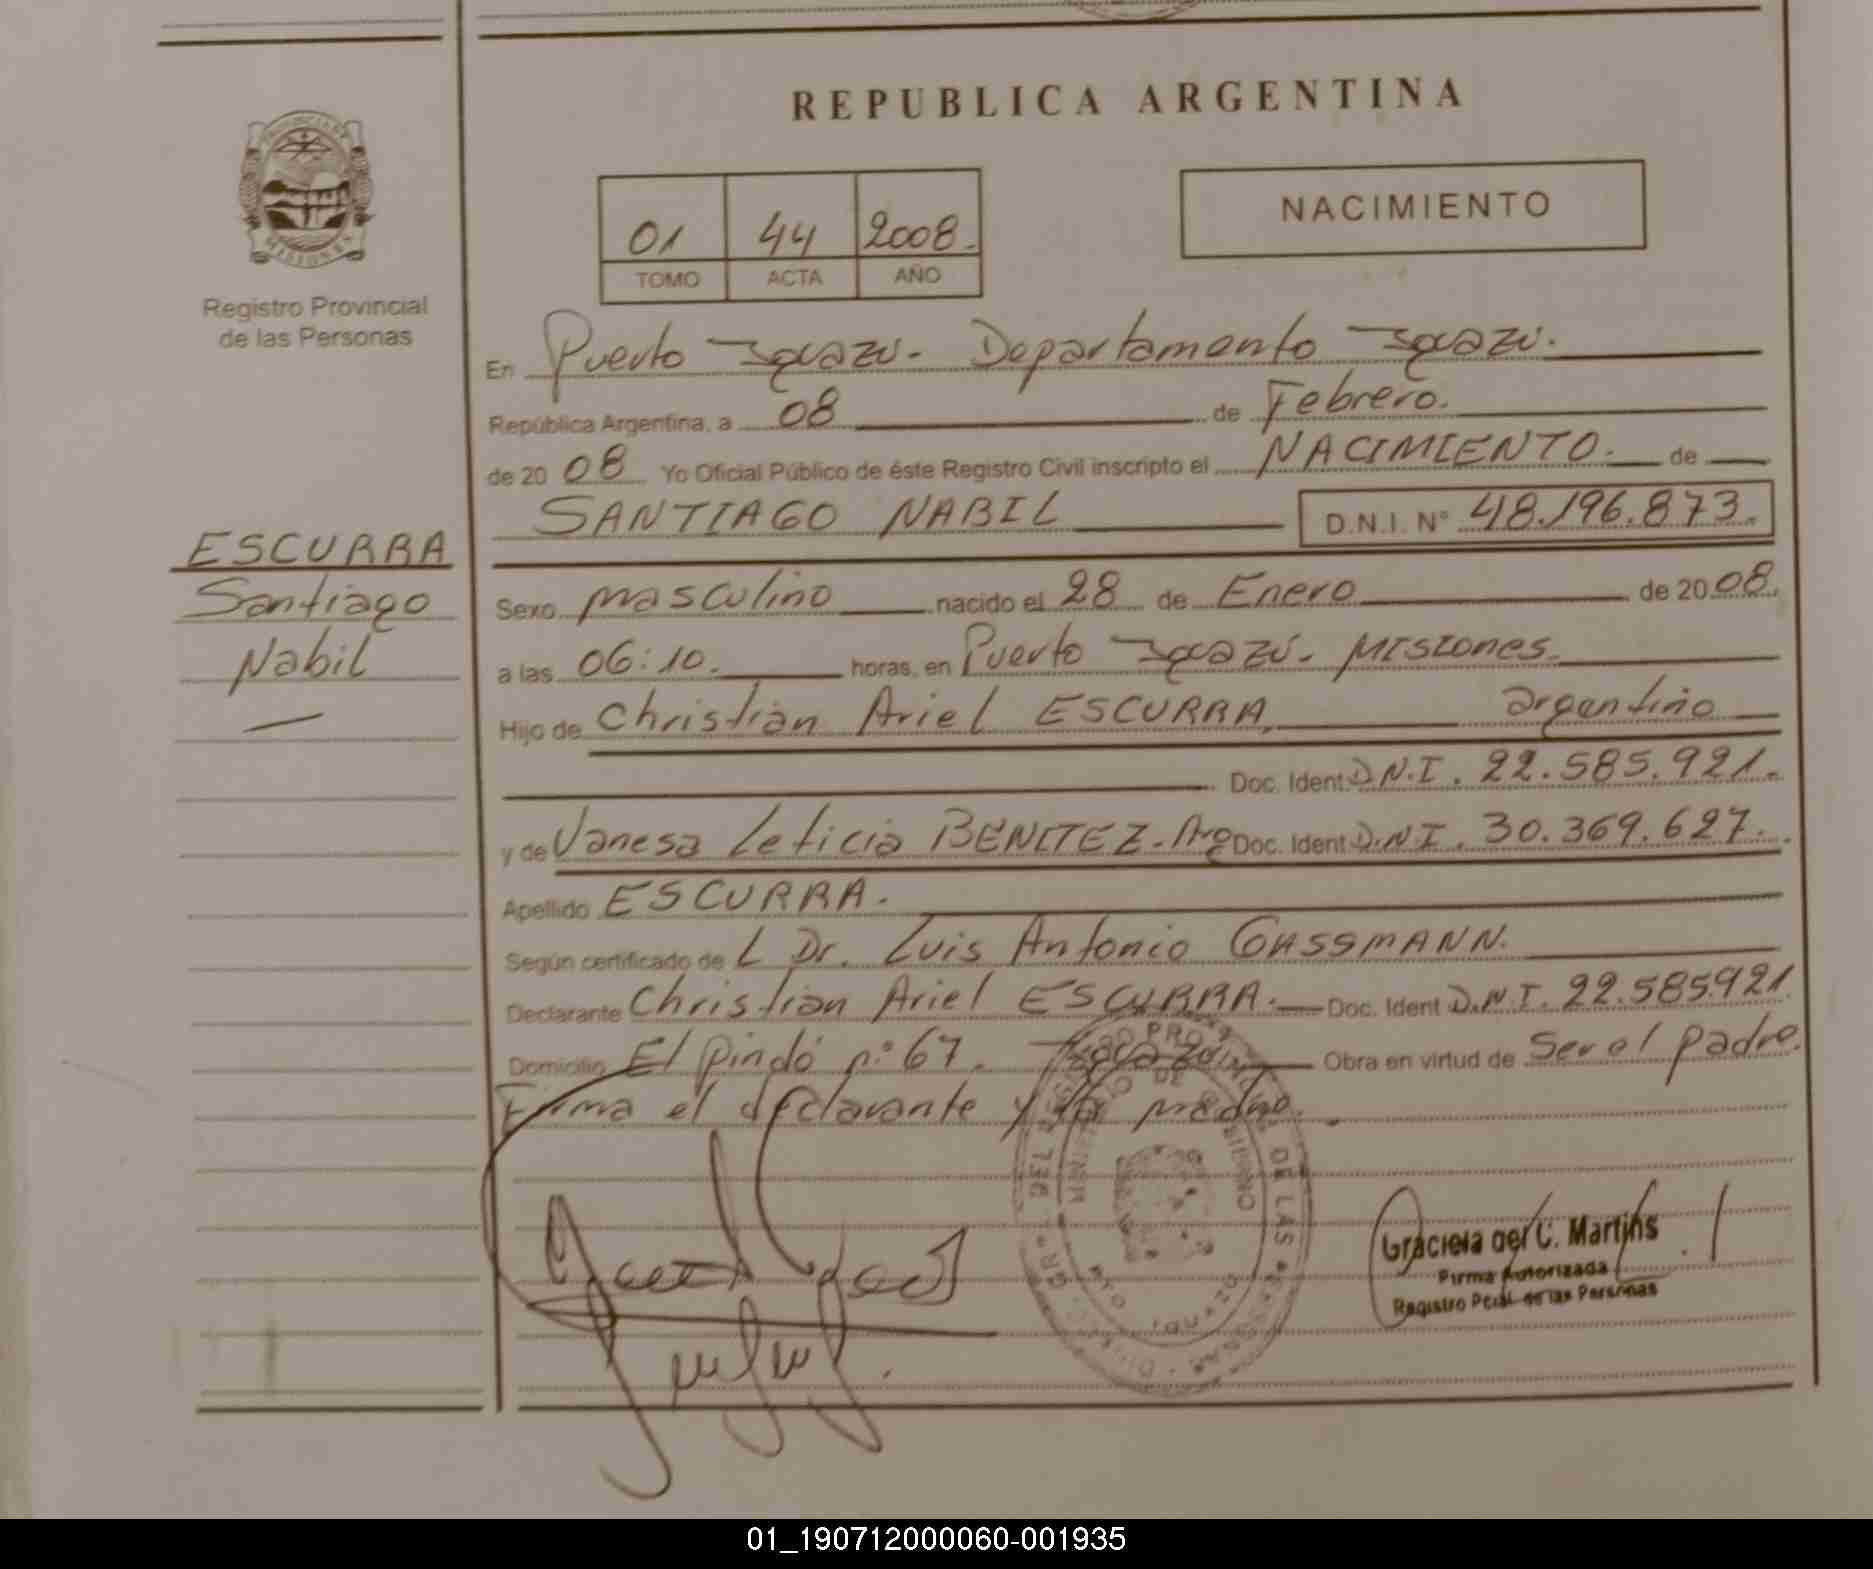 REPUBLICA ARGENTINA
PROVINCIA DE
MISIONES
Registro Provincial
de las Personas
01 44 2008.
TOMO ACTA AÑO
NACIMIENTO
En Puerto Iguazú. Departamento Iguazú.
República Argentina, a 08 de Febrero.
de 20 08 Yo Oficial Público de éste Registro Civil inscripto el NACIMIENTO. de
SANTIAGO NABIL D.N.I. Nº 48.196.873.
ESCURRA
Santiago
Nabil
Sexo masculino nacido el 28 de Enero de 20 08.
a las 06:10. horas, en Puerto Iguazú. Misiones.
Hijo de Christian Ariel ESCURRA, argentino
Doc. Ident D.N.I. 22.585.921.
y de Vanesa Leticia BENITEZ. Arg Doc. Ident D.N.I. 30.369.627.
Apellido ESCURRA.
Según certificado de L Dr. Luis Antonio GASSMANN.
Declarante Christian Ariel ESCURRA. Doc. Ident D.N.I. 22.585.921
Domicilio El pindó nº 67. Iguazú. Obra en virtud de Ser el padre.
Firma el declarante y la madre.
Graciela del C. Martins
Firma Autorizada
Registro Pcial de las Personas
01_190712000060-001935